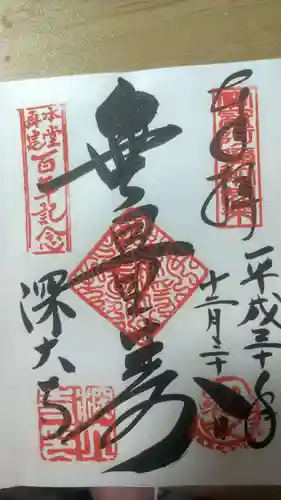 奉拝
平成三十年
十二月二十八日
無量寿
本堂
再建
百年記念
深大寺